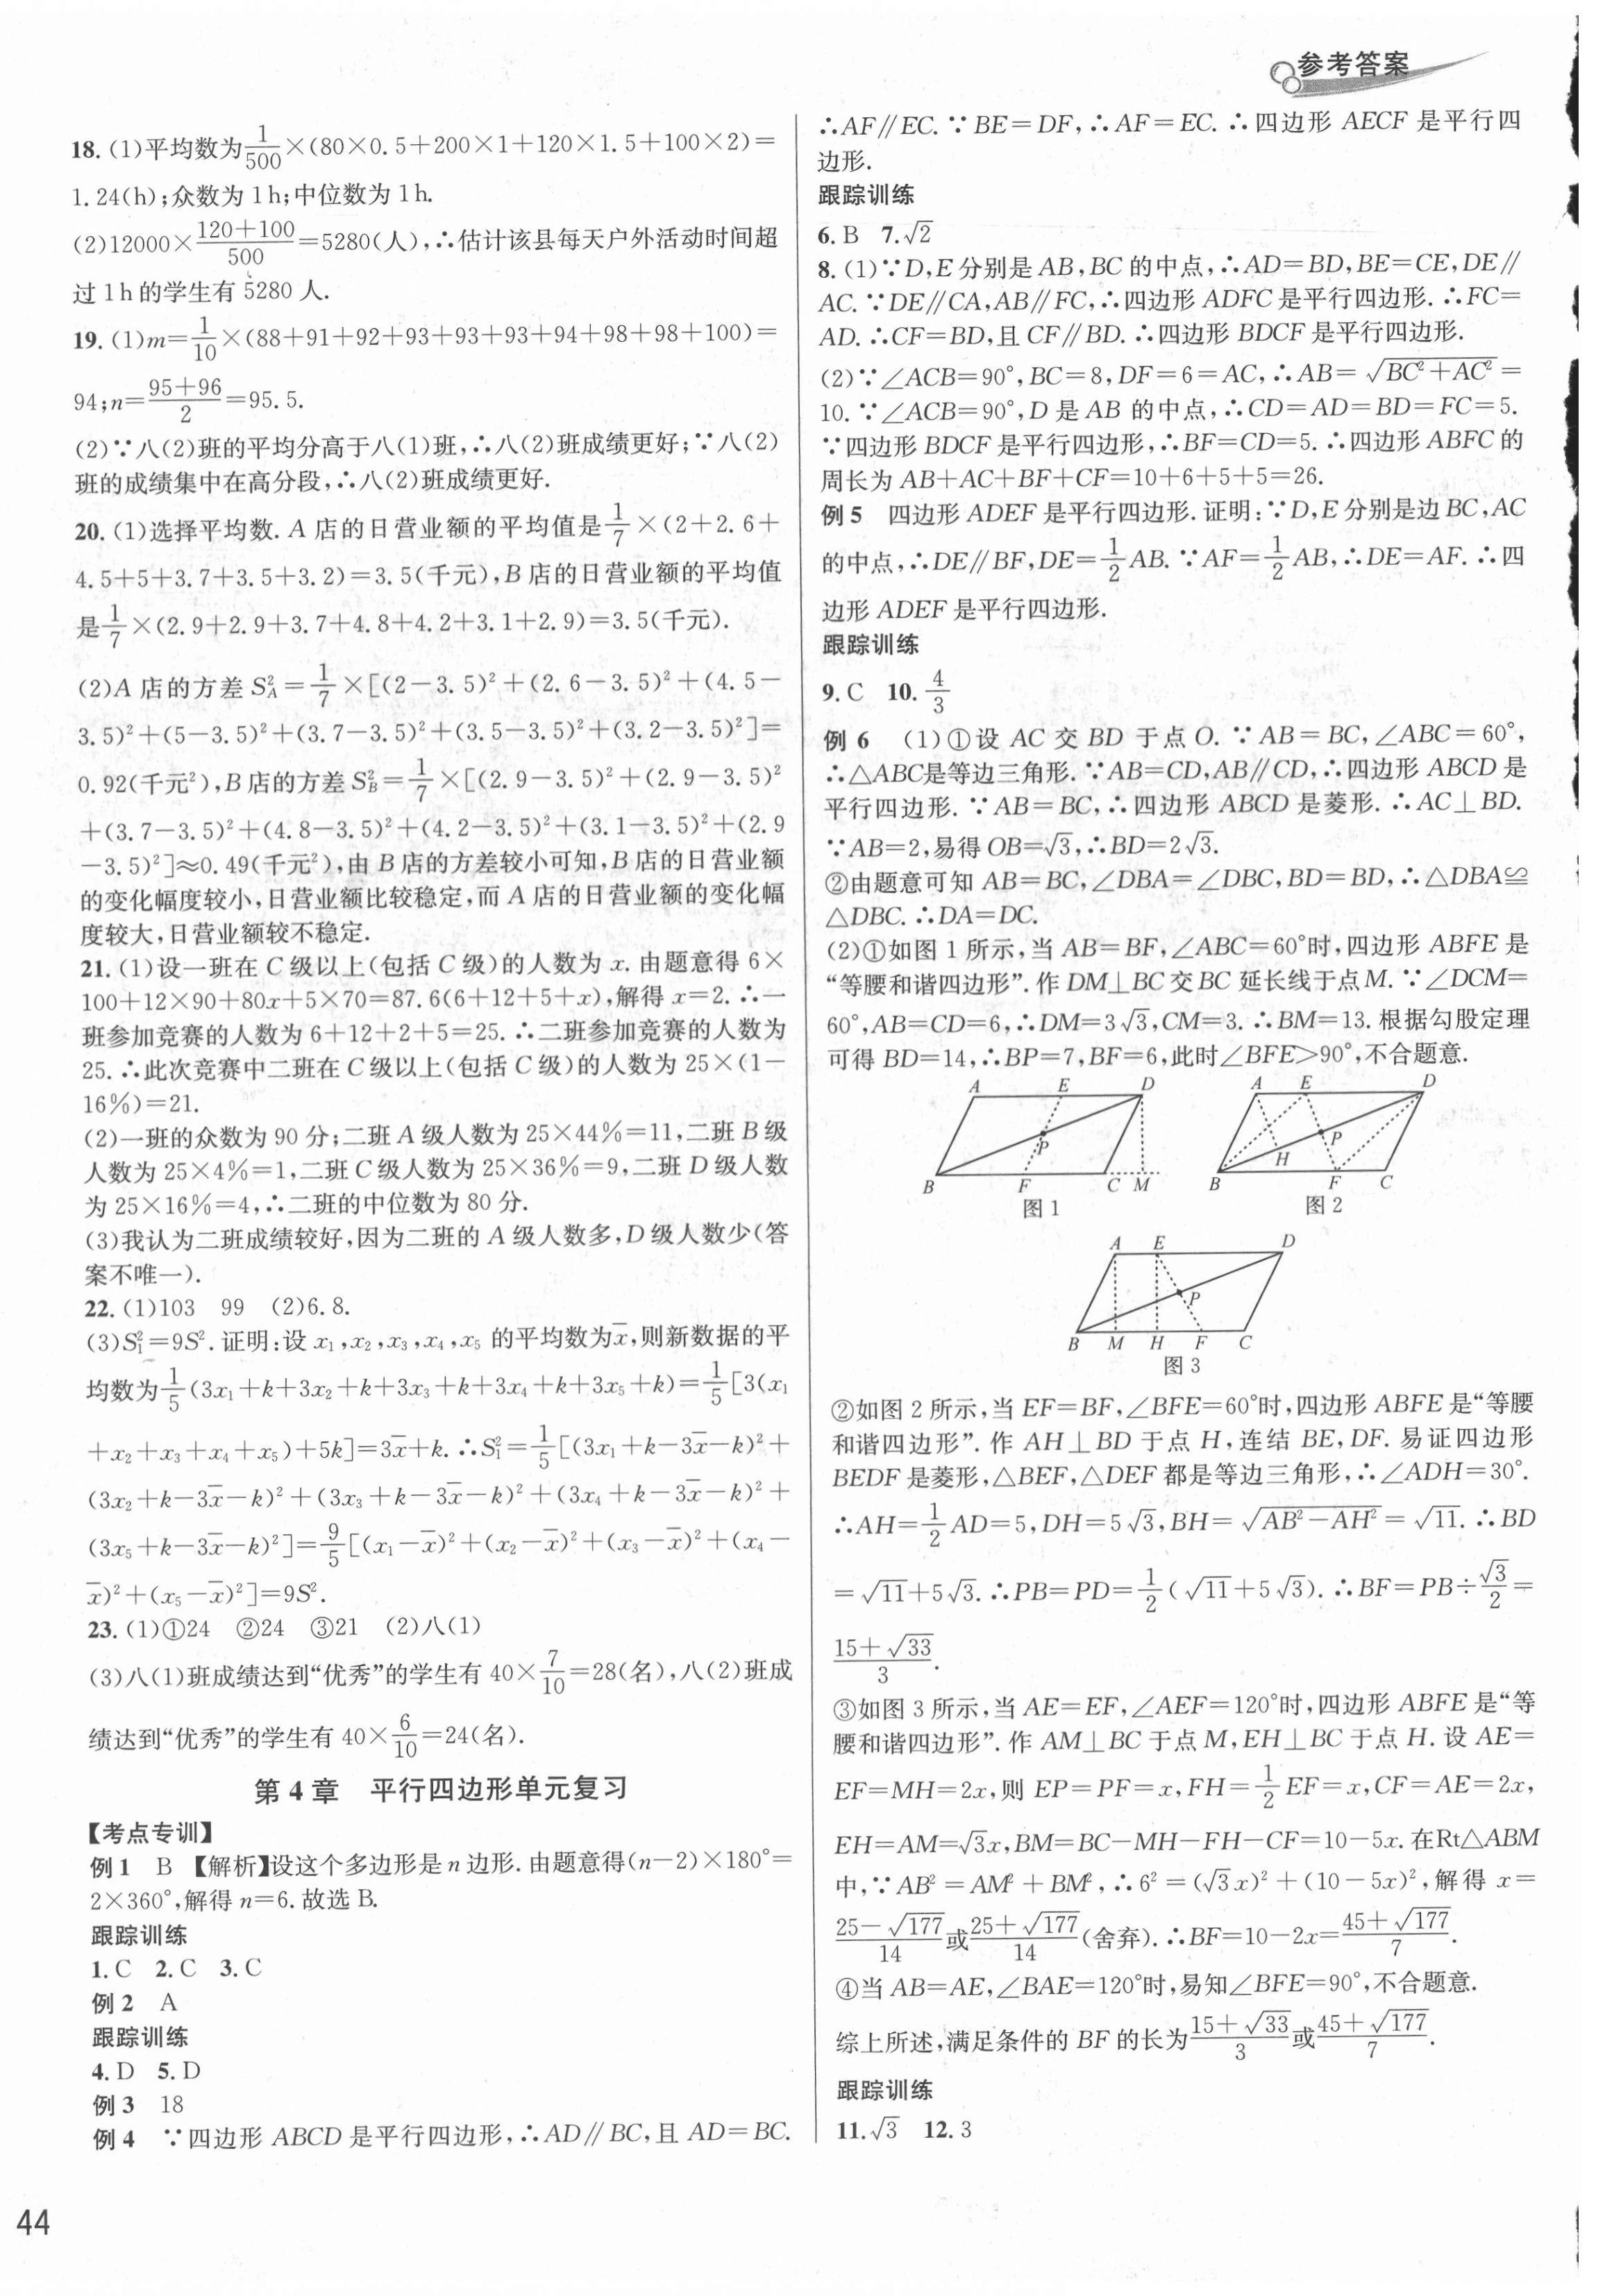 参考答案
18. (1)平均数为1/500×(80×0.5+200×1+120×1.5+100×2)=
1.24(h);众数为1h;中位数为1h.
(2)12000×(120+100)/500=5280(人),∴估计该县每天户外活动时间超
过1h的学生有5280人.
19. (1)m=1/10×(88+91+92+93+93+93+94+98+98+100)=
94;n=(95+96)/2=95.5.
(2)∵八(2)班的平均分高于八(1)班,∴八(2)班成绩更好;∵八(2)
班的成绩集中在高分段,∴八(2)班成绩更好.
20. (1)选择平均数.A店的日营业额的平均值是1/7×(2+2.6+
4.5+5+3.7+3.5+3.2)=3.5(千元),B店的日营业额的平均值
是1/7×(2.9+2.9+3.7+4.8+4.2+3.1+2.9)=3.5(千元).
(2)A店的方差S_A²=1/7×[(2-3.5)²+(2.6-3.5)²+(4.5-
3.5)²+(5-3.5)²+(3.7-3.5)²+(3.5-3.5)²+(3.2-3.5)²]=
0.92(千元²),B店的方差S_B²=1/7×[(2.9-3.5)²+(2.9-3.5)²
+(3.7-3.5)²+(4.8-3.5)²+(4.2-3.5)²+(3.1-3.5)²+(2.9
-3.5)²]≈0.49(千元²),由B店的方差较小可知,B店的日营业额
的变化幅度较小,日营业额比较稳定,而A店的日营业额的变化幅
度较大,日营业额较不稳定.
21. (1)设一班在C级以上(包括C级)的人数为x.由题意得6×
100+12×90+80x+5×70=87.6(6+12+5+x),解得x=2.∴一
班参加竞赛的人数为6+12+2+5=25.∴二班参加竞赛的人数为
25.∴此次竞赛中二班在C级以上(包括C级)的人数为25×(1-
16%)=21.
(2)一班的众数为90分;二班A级人数为25×44%=11,二班B级
人数为25×4%=1,二班C级人数为25×36%=9,二班D级人数
为25×16%=4,∴二班的中位数为80分.
(3)我认为二班成绩较好,因为二班的A级人数多,D级人数少(答
案不唯一).
22. (1)103 99 (2)6.8.
(3)S₁²=9S².证明:设x₁,x₂,x₃,x₄,x₅的平均数为x̄,则新数据的平
均数为1/5(3x₁+k+3x₂+k+3x₃+k+3x₄+k+3x₅+k)=1/5[3(x₁
+x₂+x₃+x₄+x₅)+5k]=3x̄+k.∴S₁²=1/5[(3x₁+k-3x̄-k)²+
(3x₂+k-3x̄-k)²+(3x₃+k-3x̄-k)²+(3x₄+k-3x̄-k)²+
(3x₅+k-3x̄-k)²]=9/5[(x₁-x̄)²+(x₂-x̄)²+(x₃-x̄)²+(x₄-
x̄)²+(x₅-x̄)²]=9S².
23. (1)①24 ②24 ③21 (2)八(1)
(3)八(1)班成绩达到“优秀”的学生有40×7/10=28(名),八(2)班成
绩达到“优秀”的学生有40×6/10=24(名).
第4章 平行四边形单元复习
【考点专训】
例1 B 【解析】设这个多边形是n边形.由题意得(n-2)×180°=
2×360°,解得n=6.故选B.
跟踪训练
1. C 2. C 3. C
例2 A
跟踪训练
4. D 5. D
例3 18
例4 ∵四边形ABCD是平行四边形,∴AD∥BC,且AD=BC.
∴AF∥EC.∵BE=DF,∴AF=EC.∴四边形AECF是平行四
边形.
跟踪训练
6. B 7. √2
8. (1)∵D,E分别是AB,BC的中点,∴AD=BD,BE=CE,DE∥
AC.∵DE∥CA,AB∥FC,∴四边形ADFC是平行四边形.∴FC=
AD.∴CF=BD,且CF∥BD.∴四边形BDCF是平行四边形.
(2)∵∠ACB=90°,BC=8,DF=6=AC,∴AB=√(BC²+AC²)=
10.∵∠ACB=90°,D是AB的中点,∴CD=AD=BD=FC=5.
∵四边形BDCF是平行四边形,∴BF=CD=5.∴四边形ABFC的
周长为AB+AC+BF+CF=10+6+5+5=26.
例5 四边形ADEF是平行四边形.证明:∵D,E分别是边BC,AC
的中点,∴DE∥BF,DE=1/2AB.∵AF=1/2AB,∴DE=AF.∴四
边形ADEF是平行四边形.
跟踪训练
9. C 10. 4/3
例6 (1)①设AC交BD于点O.∵AB=BC,∠ABC=60°,
∴△ABC是等边三角形.∵AB=CD,AB∥CD,∴四边形ABCD是
平行四边形.∵AB=BC,∴四边形ABCD是菱形.∴AC⊥BD.
∵AB=2,易得OB=√3,∴BD=2√3.
②由题意可知AB=BC,∠DBA=∠DBC,BD=BD,∴△DBA≌
△DBC.∴DA=DC.
(2)①如图1所示,当AB=BF,∠ABC=60°时,四边形ABFE是
“等腰和谐四边形”.作DM⊥BC交BC延长线于点M.∵∠DCM=
60°,AB=CD=6,∴DM=3√3,CM=3.∴BM=13.根据勾股定理
可得BD=14,∴BP=7,BF=6,此时∠BFE>90°,不合题意.
A E D
P
B F C M
图1
A E D
P
H
B F C
图2
A E D
P
B M H F C
图3
②如图2所示,当EF=BF,∠BFE=60°时,四边形ABFE是“等腰
和谐四边形”.作AH⊥BD于点H,连结BE,DF.易证四边形
BEDF是菱形,△BEF,△DEF都是等边三角形,∴∠ADH=30°.
∴AH=1/2AD=5,DH=5√3,BH=√(AB²-AH²)=√11.∴BD
=√11+5√3.∴PB=PD=1/2(√11+5√3).∴BF=PB÷√3/2=
(15+√33)/3.
③如图3所示,当AE=EF,∠AEF=120°时,四边形ABFE是“等
腰和谐四边形”.作AM⊥BC于点M,EH⊥BC于点H.设AE=
EF=MH=2x,则EP=PF=x,FH=1/2EF=x,CF=AE=2x,
EH=AM=√3x,BM=BC-MH-FH-CF=10-5x.在Rt△ABM
中,∵AB²=AM²+BM²,∴6²=(√3x)²+(10-5x)²,解得x=
(25-√177)/14或(25+√177)/14(舍弃).∴BF=10-2x=(45+√177)/7.
④当AB=AE,∠BAE=120°时,易知∠BFE=90°,不合题意.
综上所述,满足条件的BF的长为(15+√33)/3或(45+√177)/7.
跟踪训练
11. √3 12. 3
44